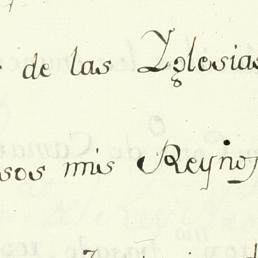 de las Yglesias
sos mis Reynos